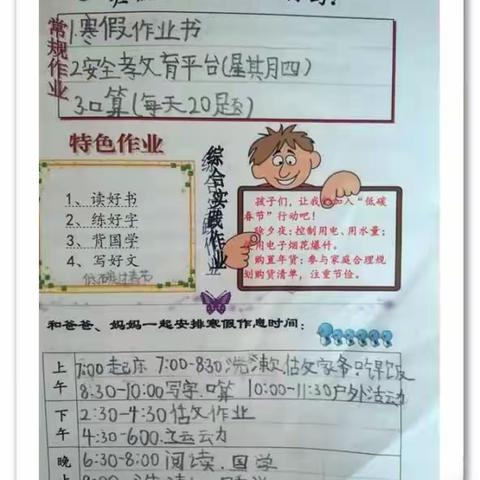 常规作业
1.寒假作业书
2安全教育平台(星其月四)
3.口算(每天20足各)
特色作业
1、读好书
2、练好字
3、背国学
4、写好文
低碳过春节
综合实践作业
孩子们，让我们加入“低碳
春节”行动吧！
除夕夜：控制用电、用水量；
使用电子烟花爆竹。
购置年货：参与家庭合理规
划购货清单，注重节俭。
和爸爸、妈妈一起安排寒假作息时间：
上午
7:00起床 7:00-830洗漱.做家务.吃早饭
8:30-10:00写字.口算 10:00-11:30户外活动
下午
2:30-4:30做作业
4:30-600.运动
晚上
6:30-8:00阅读.国学